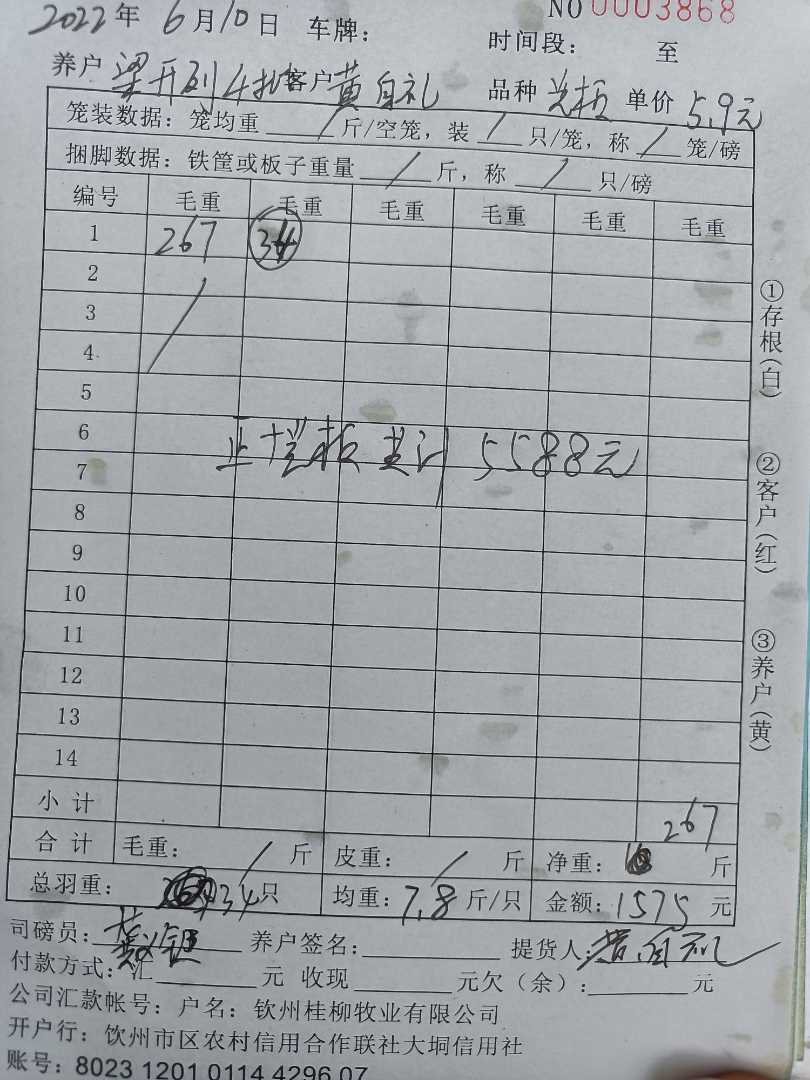 NO 0003868
2022年 6月10日 车牌: 时间段: 至
养户 梁开列 客户 黄自礼 品种 单价 5.9元
笼装数据: 笼均重 / 斤/空笼, 装 / 只/笼, 称 / 笼/磅
捆脚数据: 铁筐或板子重量 / 斤, 称 / 只/磅
编号 毛重 毛重 毛重 毛重 毛重 毛重
1 267 34
2
3
4
5
6
7
计 5588元
8
9
10
11
12
13
14
小计 267
合计 毛重: / 斤 皮重: / 斤 净重: 斤
总羽重: 34只 均重: 7.8斤/只 金额: 1575元
司磅员: 养户签名: 提货人: 黄自礼
付款方式: 汇 元 收现 元欠(余): 元
公司汇款帐号: 户名: 钦州桂柳牧业有限公司
开户行: 饮州市区农村信用合作联社大垌信用社
账号: 8023 1201 0114 4296 07
①存根(白)
②客户(红)
③养户(黄)